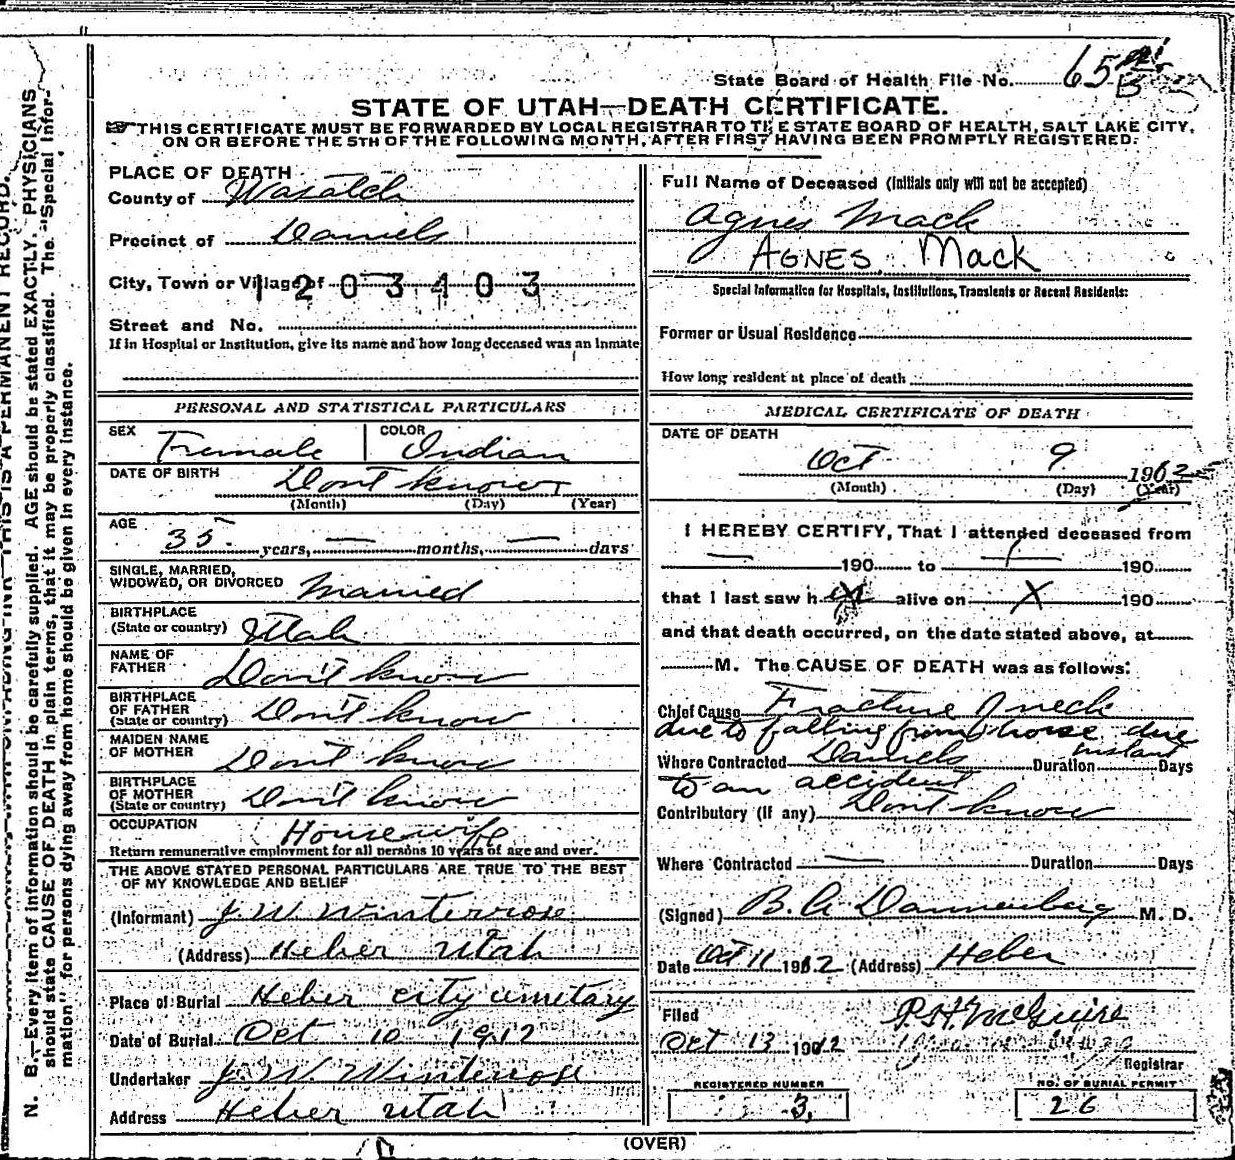 State Board of Health File No. 65
STATE OF UTAH—DEATH CERTIFICATE.
THIS CERTIFICATE MUST BE FORWARDED BY LOCAL REGISTRAR TO THE STATE BOARD OF HEALTH, SALT LAKE CITY,
ON OR BEFORE THE 5TH OF THE FOLLOWING MONTH, AFTER FIRST HAVING BEEN PROMPTLY REGISTERED.
PLACE OF DEATH
County of Wasatch
Precinct of Daniels
City, Town or Village of 1203403
Street and No.
If in Hospital or Institution, give its name and how long deceased was an inmate
PERSONAL AND STATISTICAL PARTICULARS
SEX Female COLOR Indian
DATE OF BIRTH Dont know
(Month) (Day) (Year)
AGE
35 years, — months, — days
SINGLE, MARRIED,
WIDOWED, OR DIVORCED Married
BIRTHPLACE
(State or country) Utah
NAME OF
FATHER Don't know
BIRTHPLACE
OF FATHER
(State or country) Don't know
MAIDEN NAME
OF MOTHER Don't know
BIRTHPLACE
OF MOTHER
(State or country) Don't know
OCCUPATION Housewife
Return remunerative employment for all persons 10 years of age and over.
THE ABOVE STATED PERSONAL PARTICULARS ARE TRUE TO THE BEST
OF MY KNOWLEDGE AND BELIEF
(Informant) J. W. Winterrose
(Address) Heber Utah
Place of Burial Heber city cemetary
Date of Burial Oct 10 1912
Undertaker J. W. Winterrose
Address Heber Utah
Full Name of Deceased (Initials only will not be accepted)
Agnes Mack
AGNES Mack
Special Information for Hospitals, Institutions, Transients or Recent Residents:
Former or Usual Residence
How long resident at place of death
MEDICAL CERTIFICATE OF DEATH
DATE OF DEATH
Oct 9 1912
(Month) (Day) (Year)
I HEREBY CERTIFY, That I attended deceased from
— 190 to — 190
that I last saw h er alive on X 190
and that death occurred, on the date stated above, at
M. The CAUSE OF DEATH was as follows:
Chief Cause Fracture of neck
due to falling from horse due
Where Contracted Daniels Duration instant Days
to an accident
Contributory (if any) Dont know
Where Contracted — Duration Days
(Signed) B. A. Dannenberg M. D.
Date Oct 11 1912 (Address) Heber
Filed P. H. McGuire
Oct 13 1912
Registrar
REGISTERED NUMBER
3
NO. OF BURIAL PERMIT
26
(OVER)
N. B.—Every item of information should be carefully supplied. AGE should be stated EXACTLY. PHYSICIANS
should state CAUSE OF DEATH in plain terms, that it may be properly classified. The "Special Infor-
mation" for persons dying away from home should be given in every instance.